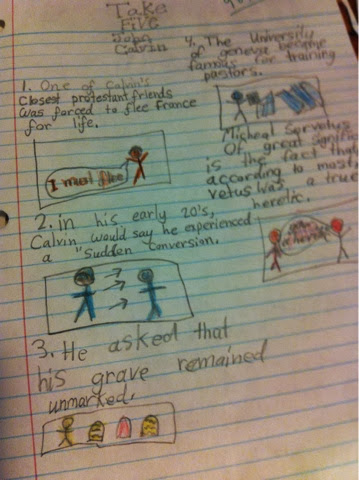 Take
Five
John
Calvin
1. One of Calvin's
closest protestant friends
was forced to flee France
for life.
I must flee
2. in his early 20's,
Calvin would say he experienced
a "Sudden conversion.
3. He asked that
his grave remained
unmarked.
4. The University
of geneva became
famous for training
pastors.
Micheal Servetus
Of great
is the fact that
according to most
vetus was a true
heretic.